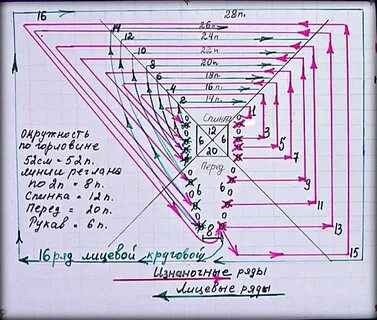 16
28п.
14
26п
12
24п
10
22п
8
20п
6
18п
4
16п
2
14п
1
Спинка
12
6 6
20
Перед
3
5
7
9
11
13
15
6 6
8
Окружность
по горловине
52см = 52п.
Линии реглана
по 2п = 8п.
Спинка = 12п.
Перед = 20п.
Рукав = 6п.
16 ряд лицевой круговой
Изнаночные ряды
Лицевые ряды